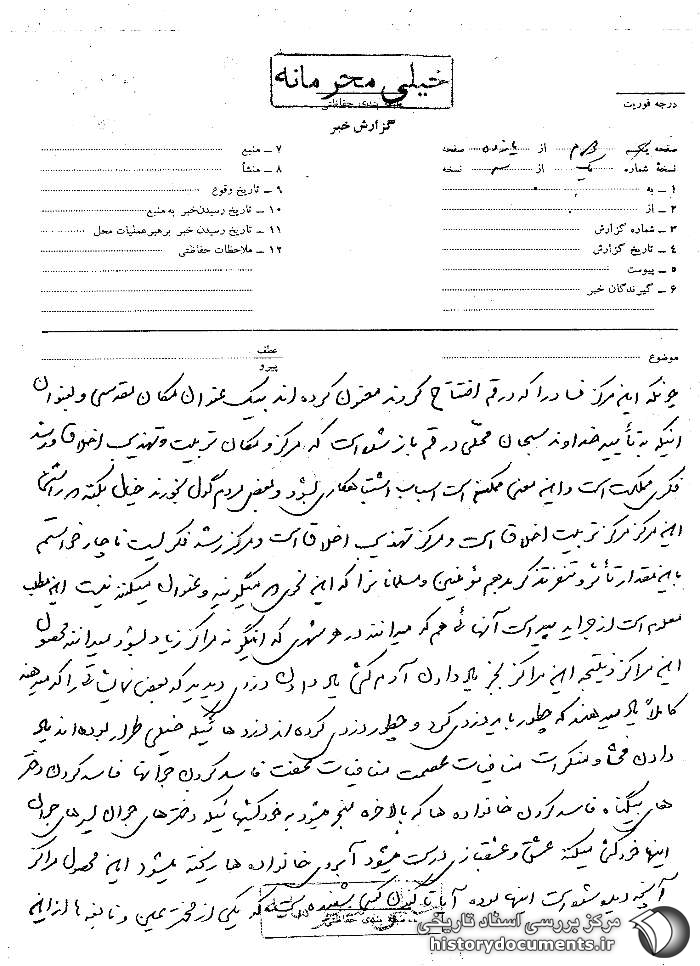 خیلی محرمانه
طبقه بندی حفاظتی
گزارش خبر
درجه فوریت
صفحه یک از یازده صفحه
نسخهٔ شماره یک از سه نسخه
۱ ـ به
۲ ـ از
۳ ـ شماره گزارش
۴ ـ تاریخ گزارش
۵ ـ پیوست
۶ ـ گیرندگان خبر
۷ ـ منبع
۸ ـ منشأ
۹ ـ تاریخ وقوع
۱۰ ـ تاریخ رسیدن خبر به منبع
۱۱ ـ تاریخ رسیدن خبر برهبر عملیات محل
۱۲ ـ ملاحظات حفاظتی
موضوع
عطف
پیرو
چونکه این مرکز فساد را که در قم افتتاح کردند معنون کرده اند بیک عنوان مکان مقدسی و بعنوان
اینکه به تأیید خداوند سبحان محلّی در قم باز شده است که مرکز و مکان تربیت و تهذیب اخلاق و رشد
فکری مملکت است و این معنی ممکنه است اسباب اشتباهکاری بشود و بعضی مردم گول بخورند خیال بکنند در راستی
این مرکز مرکز تربیت اخلاق است و مرکز تهذیب اخلاق است و مرکز رشد فکریست ناچار خواستم
باین مقدار تأثر و تنفر تذکر بدهم مؤمنین و مسلمانان را که این نحوی که میگویند و عنوان میکنند نیست این مطلب
معلوم است از جراید پیداست آنهائی هم که میدانند در هر شهری که اینگونه مراکز زیاد بشود میدانند محصول
این مراکز نتیجه این مراکز بجز یاد دادن آدم کشی یاد دادن دزدی دیدید که بعضی نمایش را که میدهند
کاملاً یاد میدهند که چطور باید دزدی کرد و چطور دزدی کرده اند دزد هائیکه خیلی طرار بوده اند یاد
دادن فحشا و منکرات منافیات عصمت منافیات عفت فاسد کردن جوانها فاسد کردن دختر
های بیگناه فاسد کردن خانواده ها که بالاخره منجر میشود به خودکشیها اینکه دخترهای جوان پسرهای جوان
اینها خودکشی میکنند عشق و عشقبازی درست میشود آبروی خانواده ها ریخته میشود این محصول مراکز
آنچه دیده شده است اینها بوده آیا تا کنون کسی شنیده که یکی از مخترعین و نابغه ها از این
خیلی محرمانه
طبقه بندی حفاظتی
مرکز بررسی اسناد تاریخی
historydocuments.ir